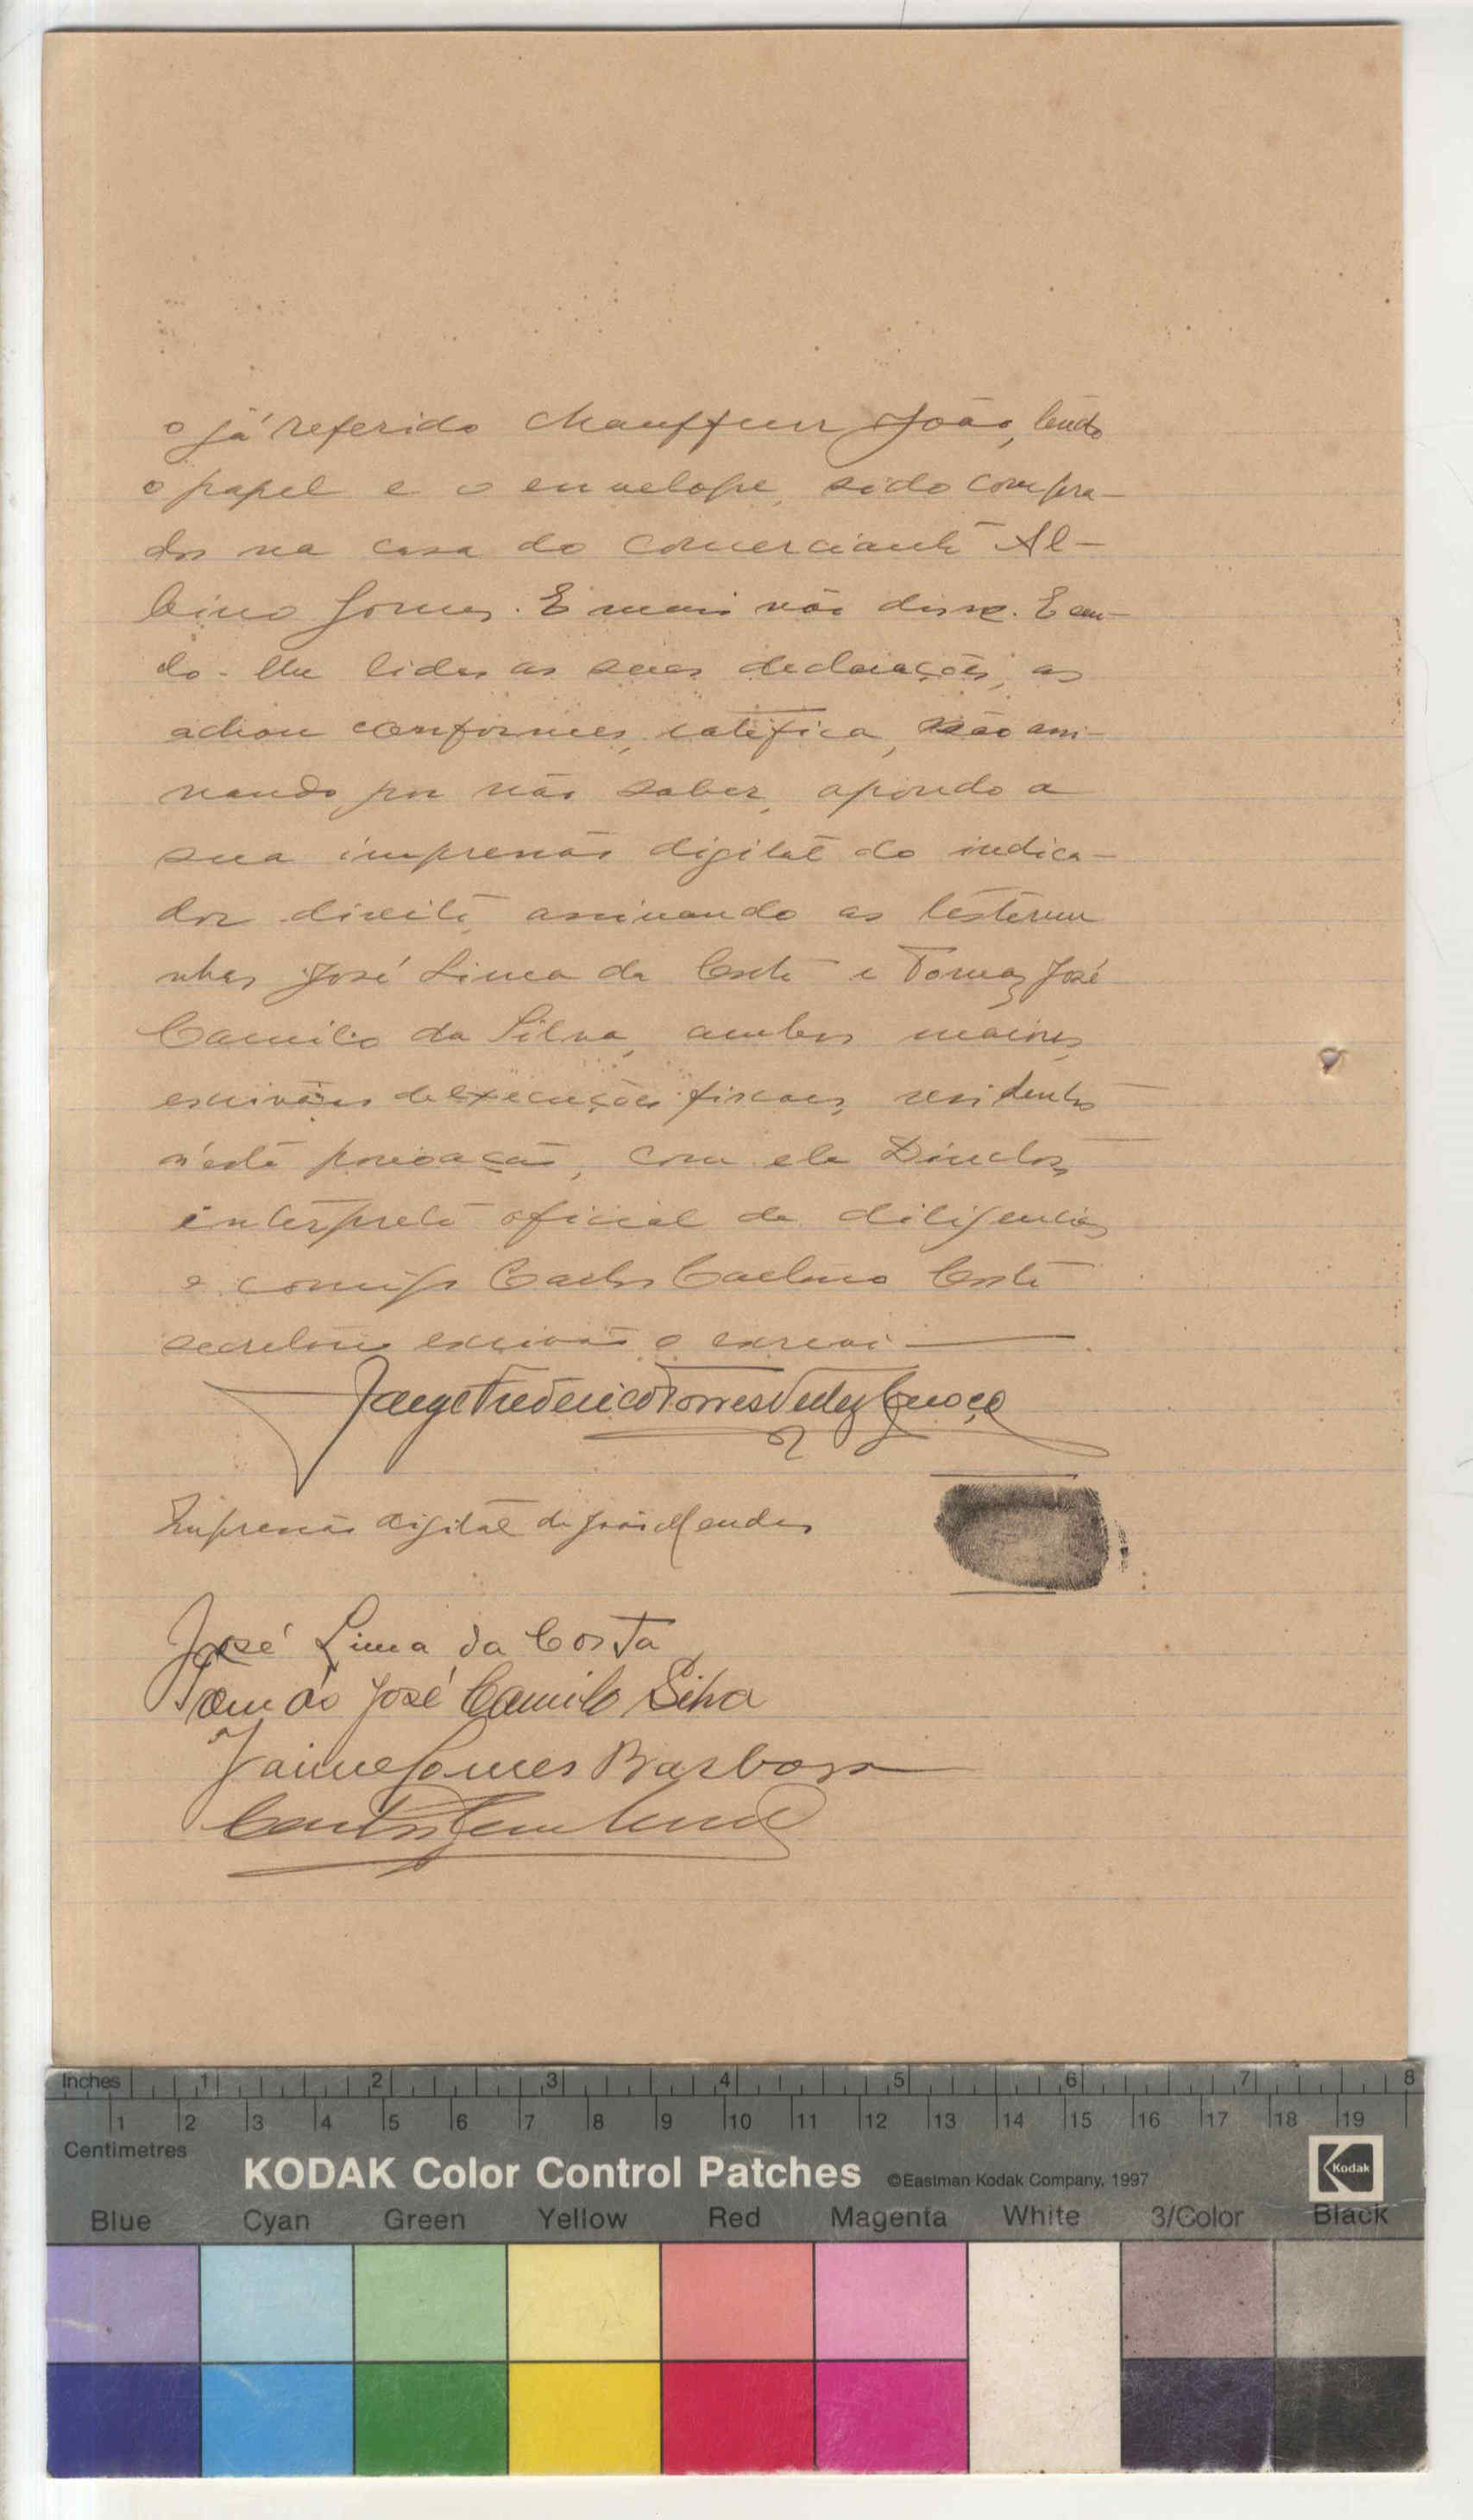 o já referido chauffeur João, tendo
o papel e o envelope, sido compra-
dos na casa do comerciante Al-
bino Gomes. E mais não disse. E sen-
do-lhe lidas as suas declarações, as
achou conformes, ratifica, não assi-
nando por não saber, apondo a
sua impressão digital do indica-
dor direito, assinando as testemu
nhas José Lima da Costa e Tomaz José
Camilo da Silva, ambos maiores,
escrivães de execuções fiscaes, residentes
n'esta povoação, com ele Director,
interprete oficial de diligencias
e comigo Carlos Caetano Costa
secretario escrivão o escrevi
Jorge Frederico Torres Velez Caroço
Impressão digital de João Mendes
José Lima da Costa
Tomás José Camilo Silva
Jaime Gomes Barbosa
Inches 1 2 3 4 5 6 7 8
1 2 3 4 5 6 7 8 9 10 11 12 13 14 15 16 17 18 19
Centimetres
KODAK Color Control Patches ©Eastman Kodak Company, 1997 Kodak
Blue Cyan Green Yellow Red Magenta White 3/Color Black